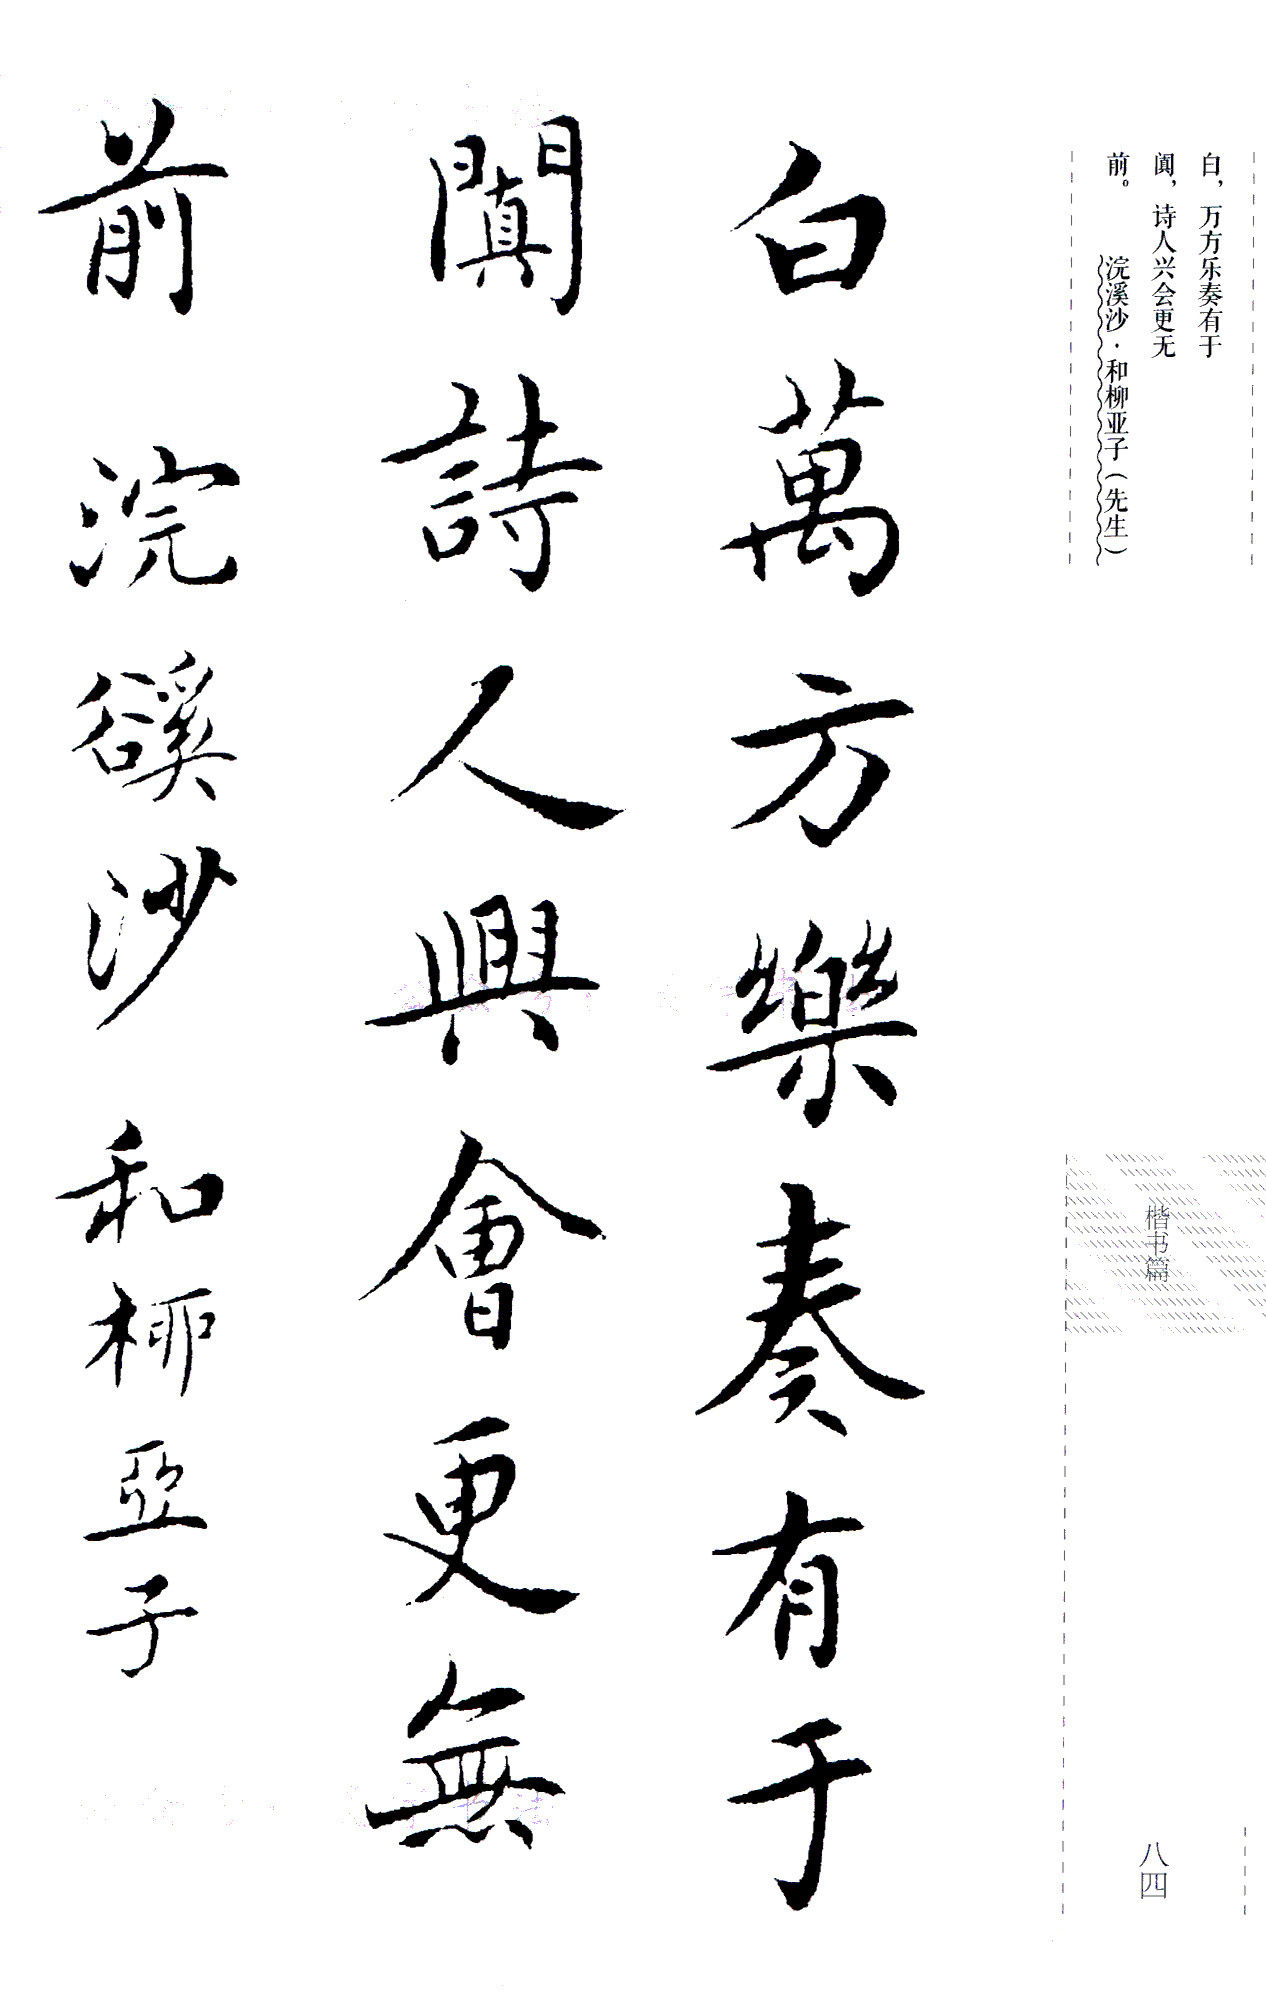 白，万方乐奏有于
阗，诗人兴会更无
前。 浣溪沙·和柳亚子（先生）
楷书篇
八四
白萬方樂奏有于
闐詩人興會更無
前 浣谿沙 和柳亞子